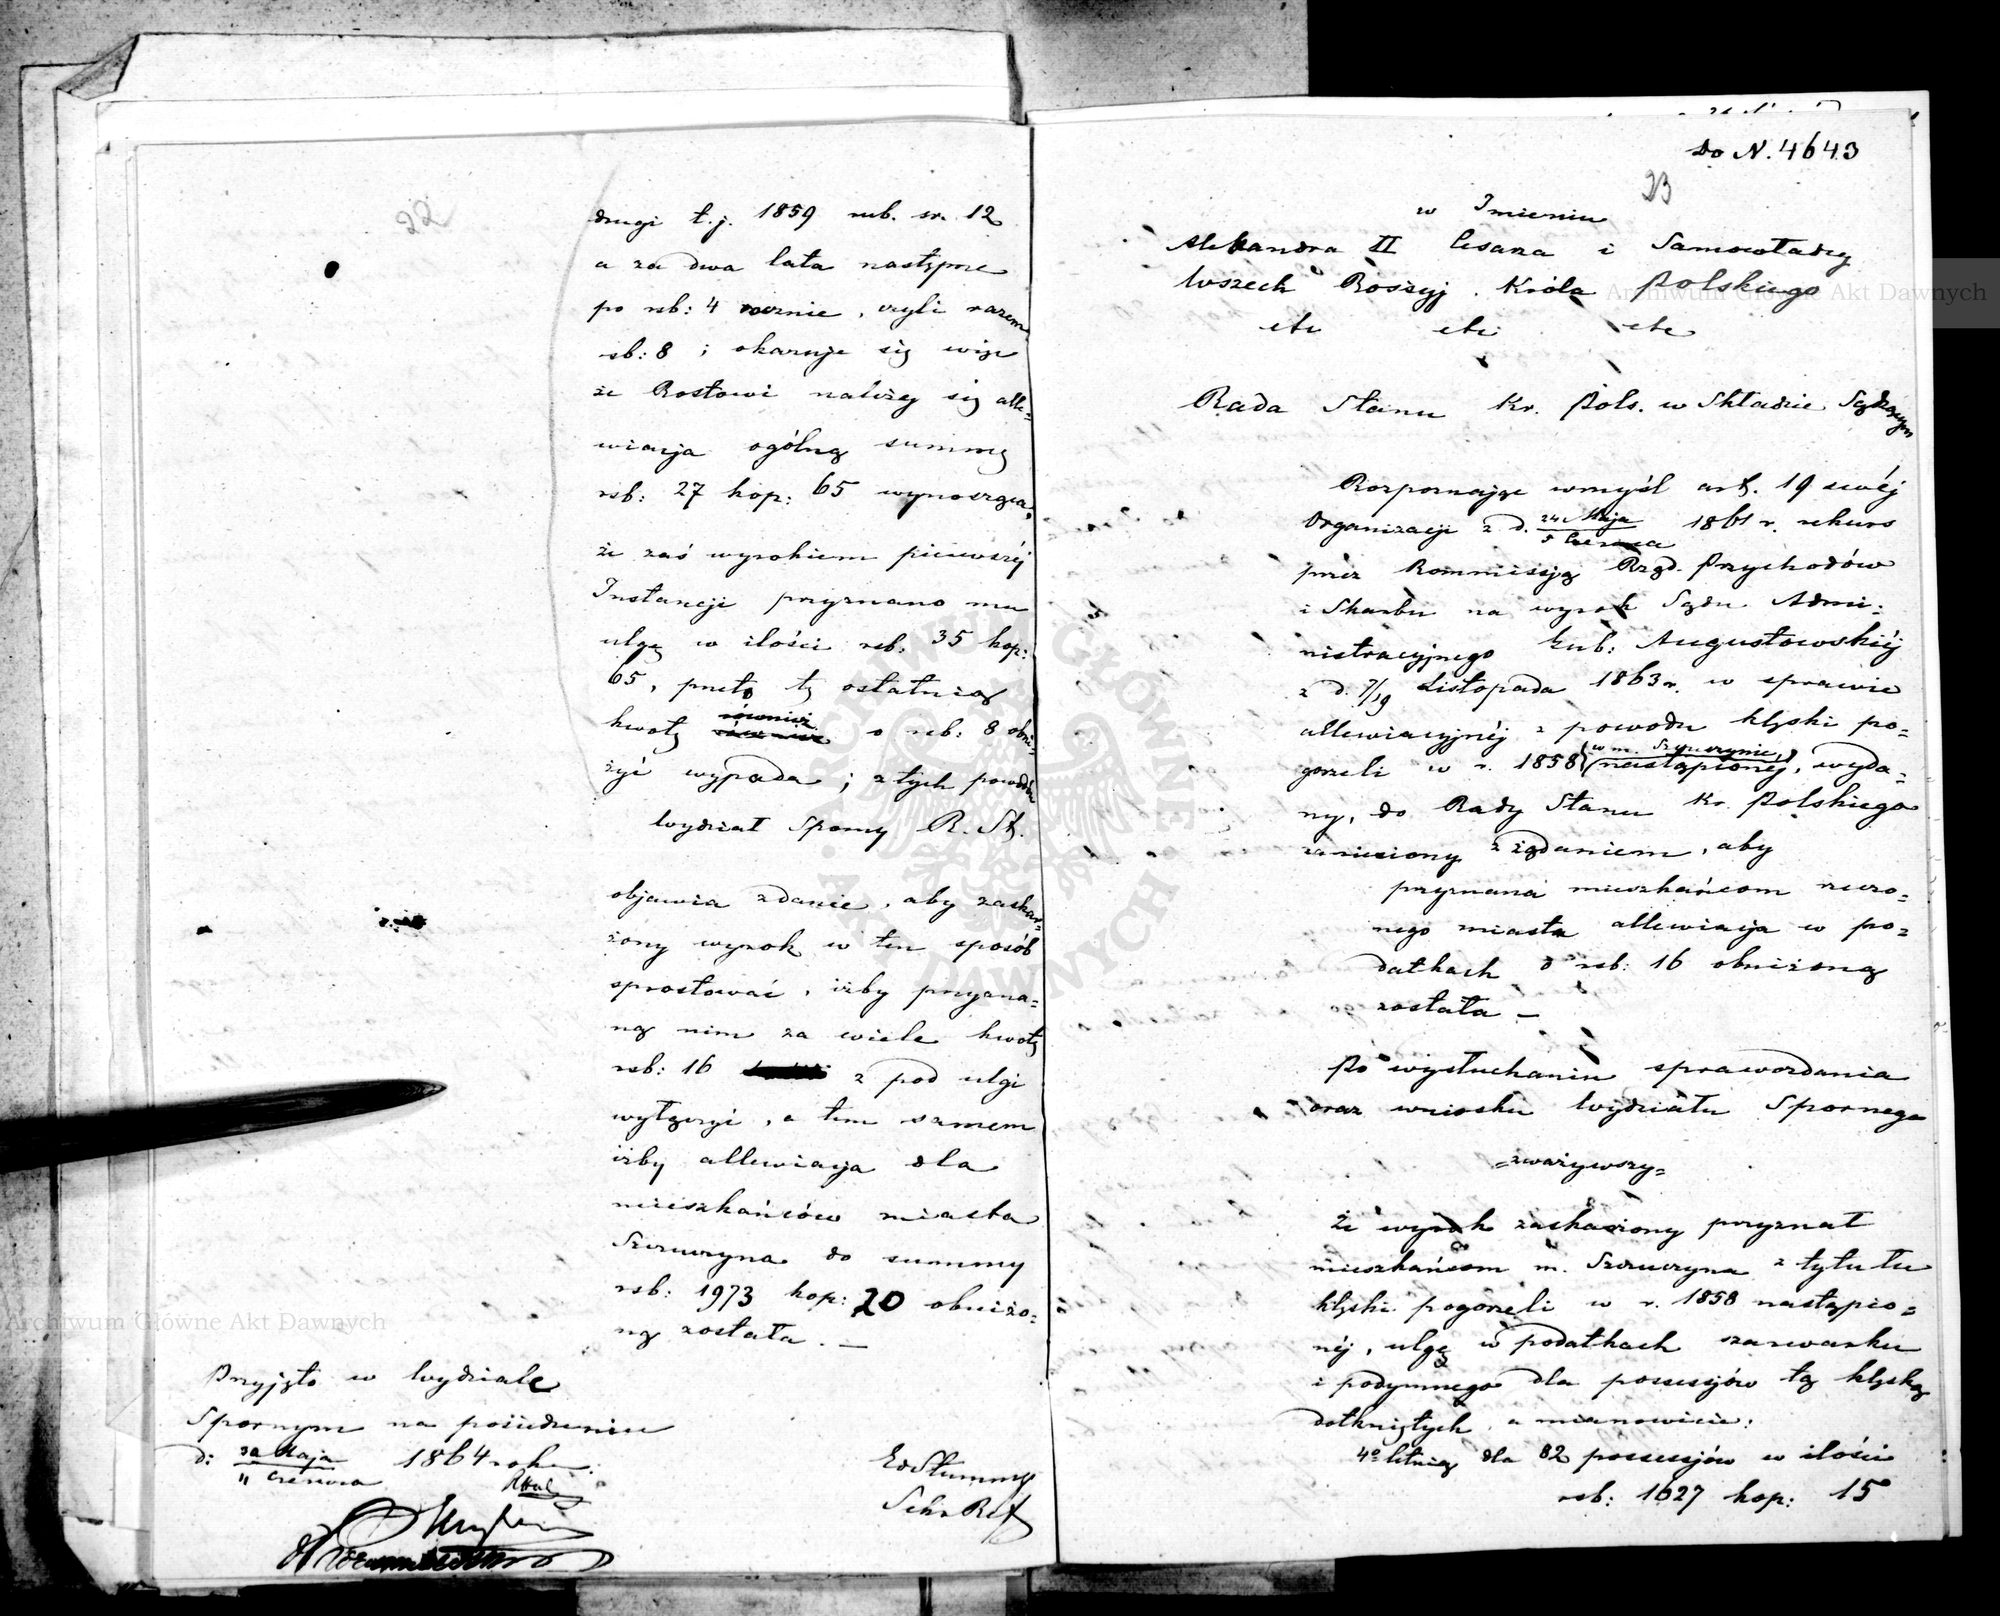 22
drugi t.j. 1859 rub. sr. 12
a za dwa lata następne
po rsb: 4 rocznie, czyli razem
rsb: 8 ; okazuje się więc
że Rostowi należy się alle=
wiacja ogólną summę
rsb: 27 kop: 65 wynosząca,
że zaś wyrokiem pierwszéj
Instancji przyznano mu
ulgę w ilości rsb: 35 kop:
65, przeto tę ostatnią
kwotę również o rsb: 8 obni=
żyć wypada ; z tych powodów
Wydział Sporny R. St.
objawia zdanie, aby zaskar=
żony wyrok w ten sposób
sprostować, iżby przyzna=
ną nim za wiele kwotę
rsb: 16 z pod ulgi
wyłączyć, a tem samem
iżby allewiacja dla
mieszkańców miasta
Szczuczyna do summy
rsb: 1973 kop: 20 obniżo=
ną została. —
Przyjęto w Wydziale
Spornym na posiedzeniu
d: Maja 1864 roku.
Czerwca
Do N. 4643
23
w Imieniu
Aleksandra II Cesarza i Samowładcy
Wszech Rossyj. Króla Polskiego
etc etc etc
Rada Stanu Kr. Pols. w Składzie Sądzącym
Rozpoznając wmyśl art. 19 swéj
Organizacji z d. 24 Maja / 5 Czerwca 1861 r. rekurs
przez Kommissyę Rząd. Przychodów
i Skarbu na wyrok Sądu Admi=
nistracyjnego Gub: Augustowskiéj
z d. 7/19 Listopada 1863 r. w sprawie
allewiacyjnéj z powodu klęski po=
gorzeli w r. 1858 (w m. Szczuczynie) nastąpionéj, wyda=
ny, do Rady Stanu Kr. Polskiego
zaniesiony z żądaniem, aby
przyznana mieszkańcom rzeczo=
nego miasta allewiacja w po=
datkach o rsb: 16 obniżoną
została —
Po wysłuchaniu sprawozdania
oraz wniosku Wydziału Spornego
=zważywszy=
Że wyrok zaskarżony przyznał
mieszkańcom m. Szczuczyna z tytułu
klęski pogorzeli w r. 1858 nastąpio=
néj, ulgę w podatkach szarwarku
i podymnego dla possesjów tą klęską
dotkniętych a mianowicie:
4o letnią dla 82 possesjów w ilości
rsb: 1627 kop: 15
Archiwum Główne Akt Dawnych
Archiwum Główne Akt Dawnych
ARCHIWUM GŁÓWNE AKT DAWNYCH